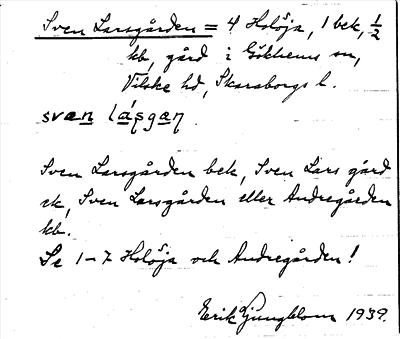 Sven Larsgården = 4 Holsöja, 1 bek, 1/2
kb, gård i Gökhems sn,
Vilske hd, Skaraborgs l.
svæn lásgan.
Sven Larsgården bek, Sven Lars gård
ek, Sven Larsgården eller Andregården
kb.
Se 1-7 Holsöja och Andregården!
Erik Ljungblom 1939.